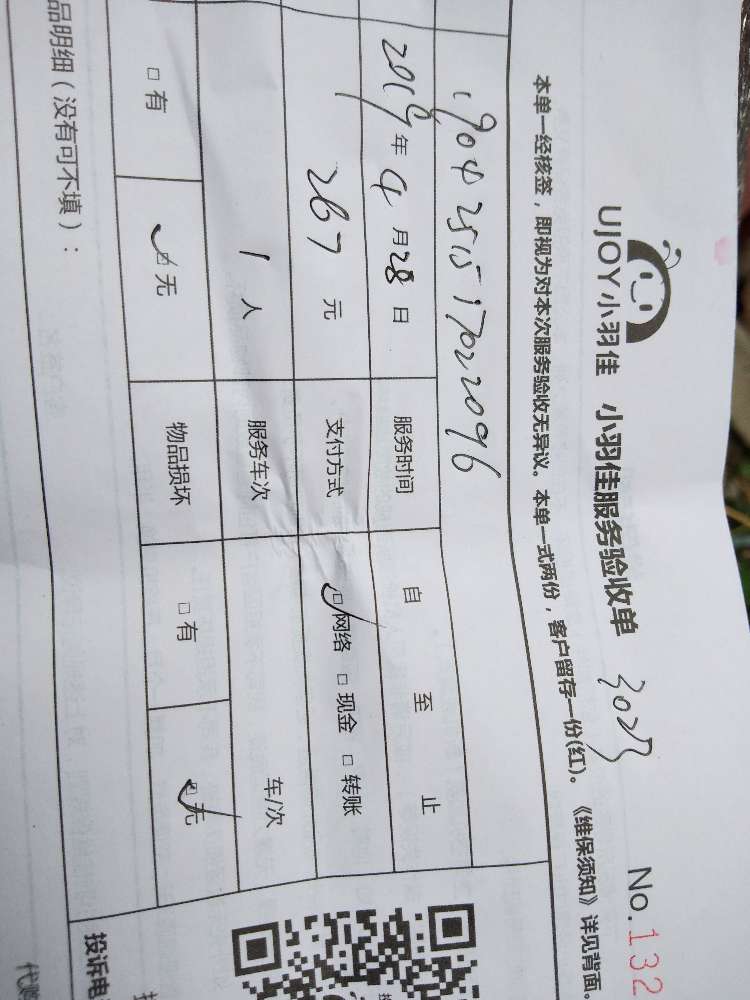 UJOY小羽佳 小羽佳服务验收单 3023 No.132
本单一经核签，即视为对本次服务验收无异议。本单一式两份，客户留存一份(红)。《维保须知》详见背面。
1904251517022096
2019年4月28日 服务时间 自 至 止
267元 支付方式 ☑网络 □现金 □转账
1人 服务车次 车/次
□有 ☑无 物品损坏 □有 ☑无
品明细（没有可不填）：
投诉电